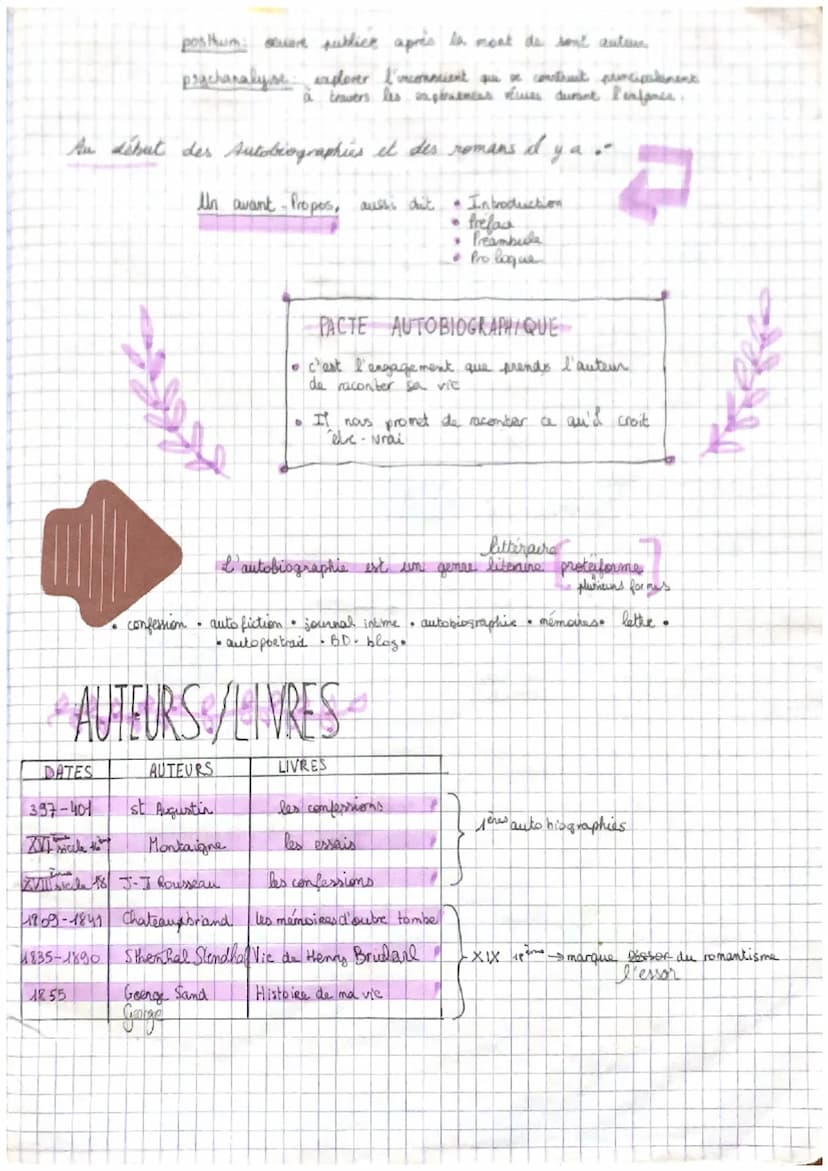 posthum: œuvre publiée après la mort de sont auteur
psychanalyse: explorer l'inconscient qui se construit principalement
à travers les expériences vécues durant l'enfance.
Au début des Autobiographies et des romans il y a :
Un avant-Propos, aussi dit • Introduction
• Préface
• Préambule
• Prologue
PACTE AUTOBIOGRAPHIQUE
• c'est l'engagement que prends l'auteur
de raconter sa vie
• Il nous promet de raconter ce qu'il croit
être vrai
littéraire
L'autobiographie est un genre literaire [protéiforme]
plusieurs formes
• confession • auto fiction • journal intime • autobiographie • mémoires • lettre •
• autoportrait • BD • blog •
AUTEURS/LIVRES
DATES AUTEURS LIVRES
397-401 st Augustin les confessions
XVI siècle 16ème Montaigne les essais
1ères autobiographies
XVIII siècle 18 J-J Rousseau les confessions
1809-1841 Chateaubriand les mémoires d'outre tombe
1835-1890 Sthenhal Stendhal Vie de Henry Brulard
XIX ième → marque l'essor du romantisme
l'essor
1855 George Sand Histoire de ma vie
George